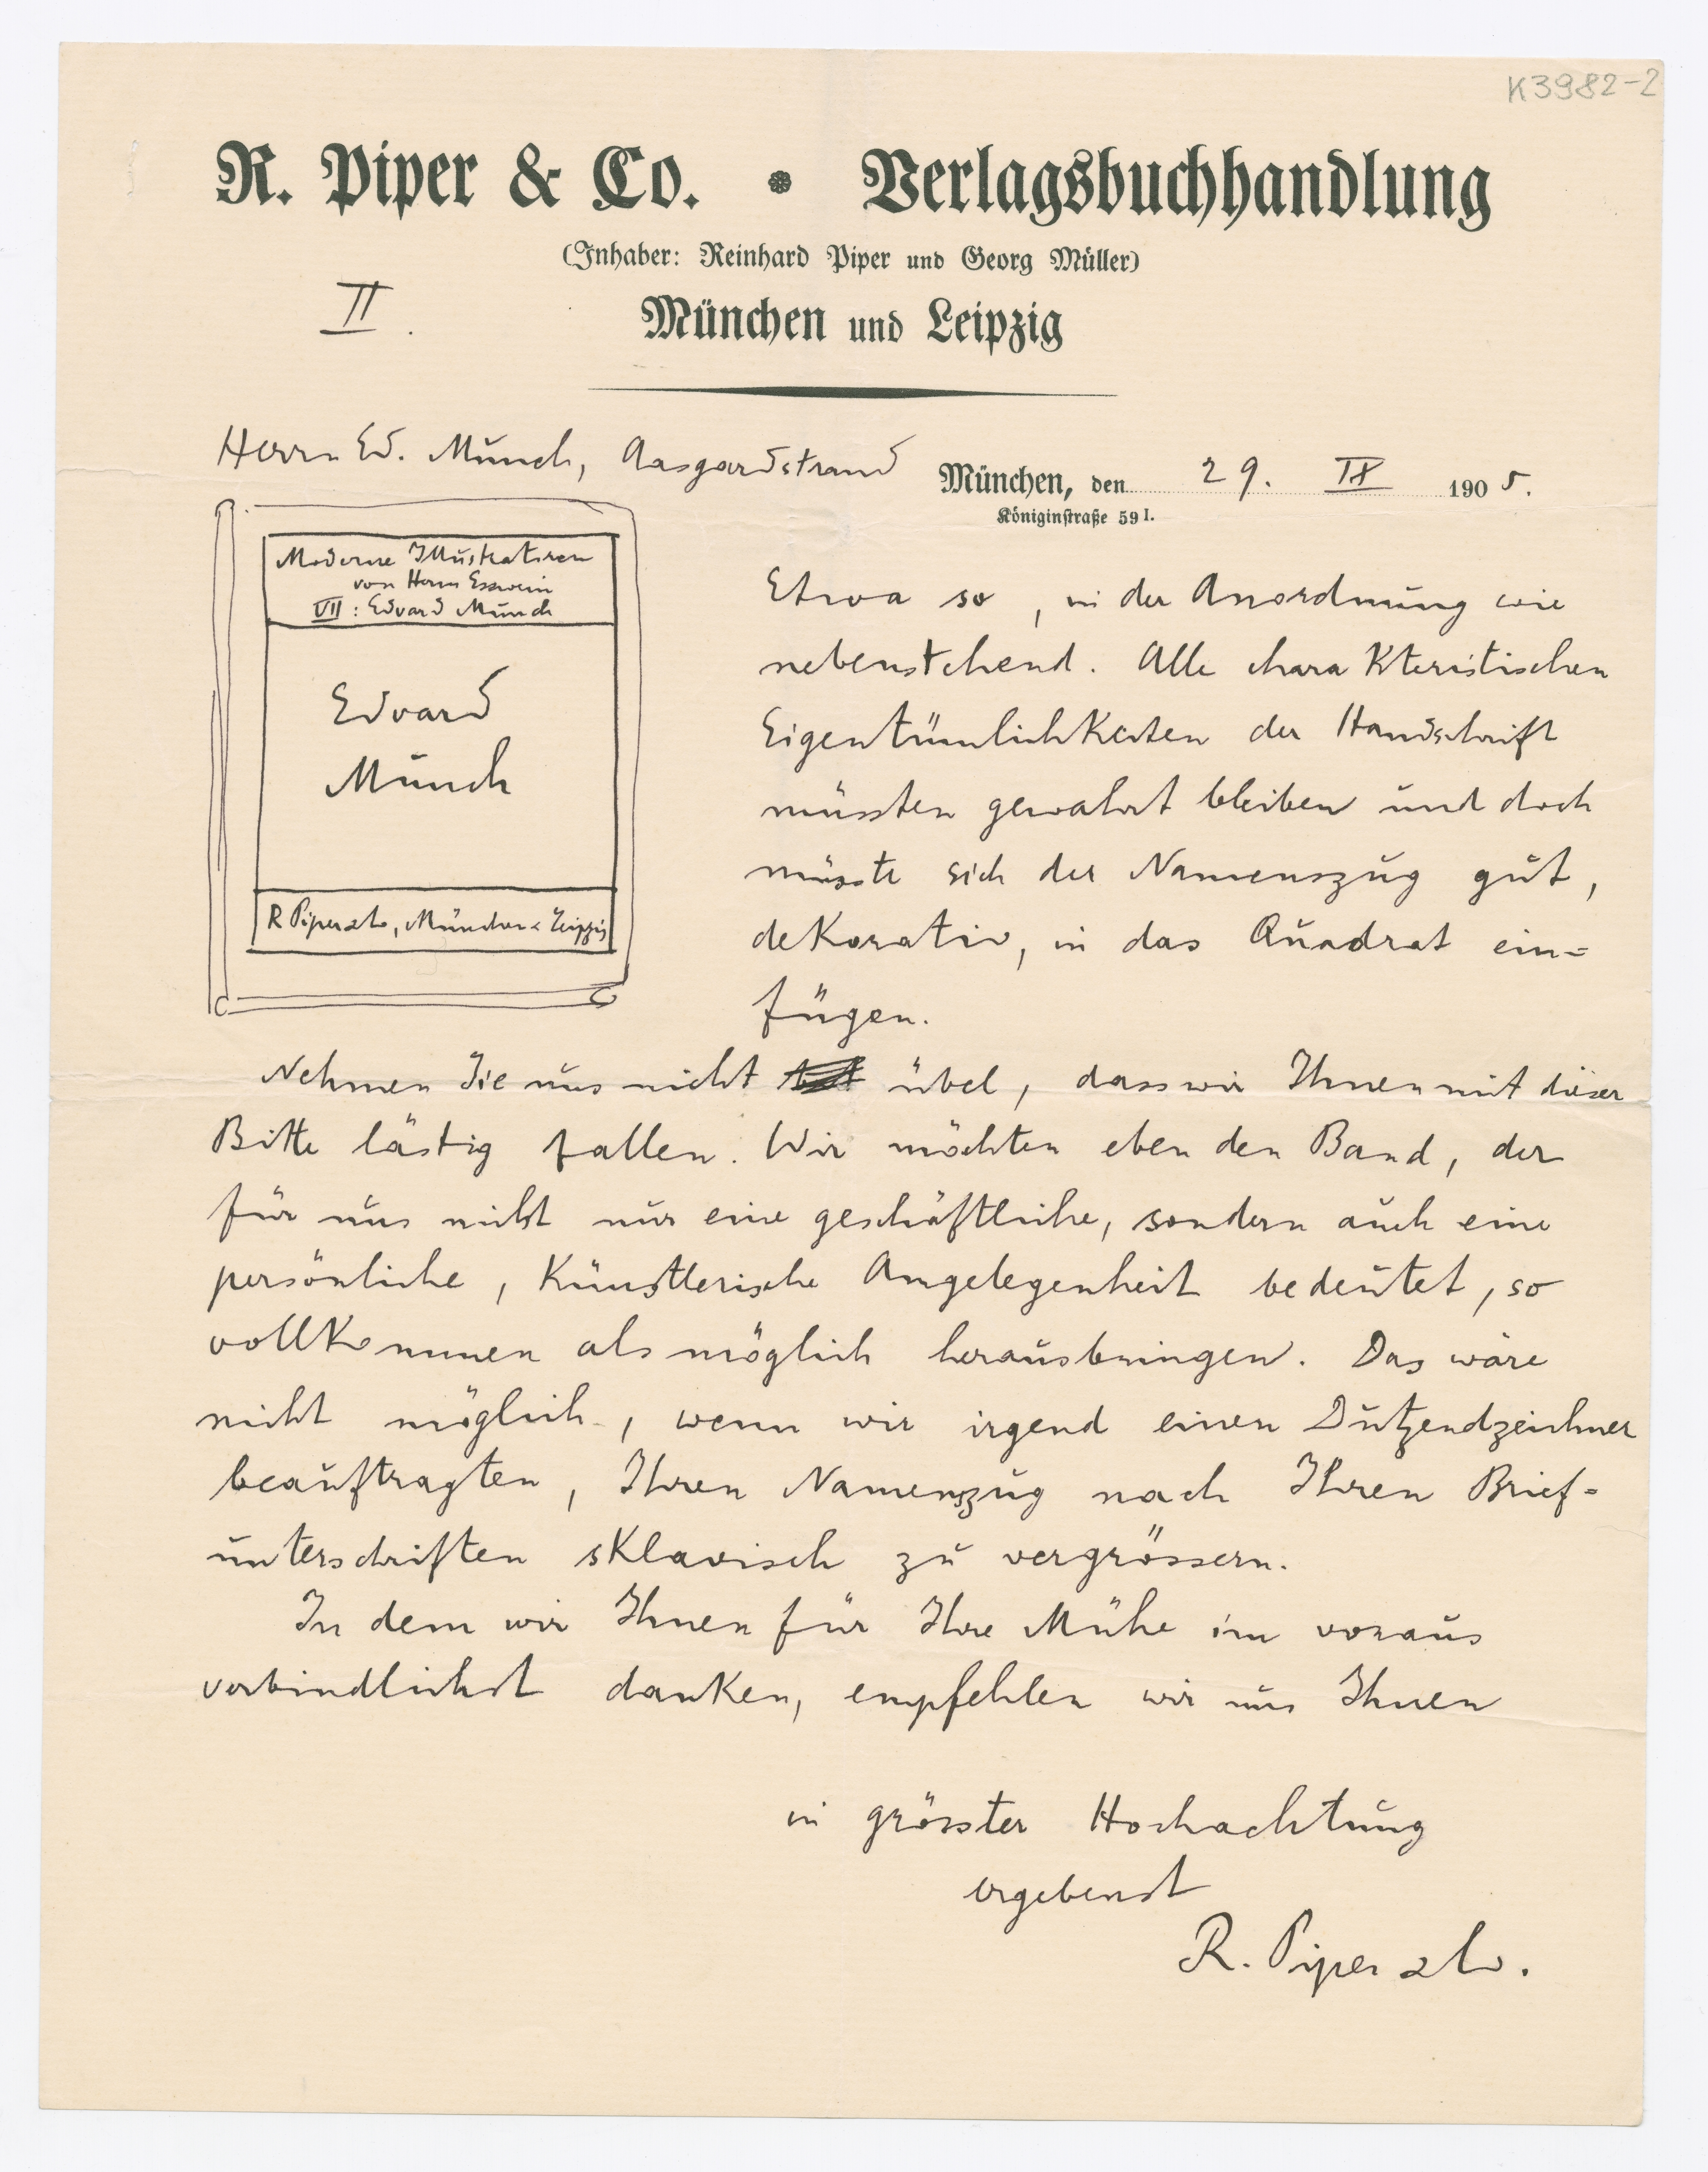 K3982-2
R. Piper & Co. • Verlagsbuchhandlung
(Inhaber: Reinhard Piper und Georg Müller)
II.
München und Leipzig
Herrn Ed. Munch, Aasgardstrand
München, den 29. IX 1905.
Königinstraße 59 I.
Moderne Illustratoren
von Herm Esswein
VII: Edvard Munch
Edvard
Munch
R Piper & Co, München & Leipzig
Etwa so, in der Anordnung wie
nebenstehend. Alle charakteristischen
Eigentümlichkeiten der Handschrift
müssten gewahrt bleiben und doch
müsste sich der Namenszug gut,
dekorativ, in das Quadrat ein=
fügen.
Nehmen Sie uns nicht übel, dass wir Ihnen mit dieser
Bitte lästig fallen. Wir möchten eben den Band, der
für uns nicht nur eine geschäftliche, sondern auch eine
persönliche, künstlerische Angelegenheit bedeutet, so
vollkommen als möglich herausbringen. Das wäre
nicht möglich, wenn wir irgend einen Dutzendzeichner
beauftragten, Ihren Namenszug nach Ihren Brief=
unterschriften sklavisch zu vergrössern.
In dem wir Ihnen für Ihre Mühe im voraus
verbindlichst danken, empfehlen wir uns Ihnen
in grösster Hochachtung
ergebenst
R. Piper & Co.